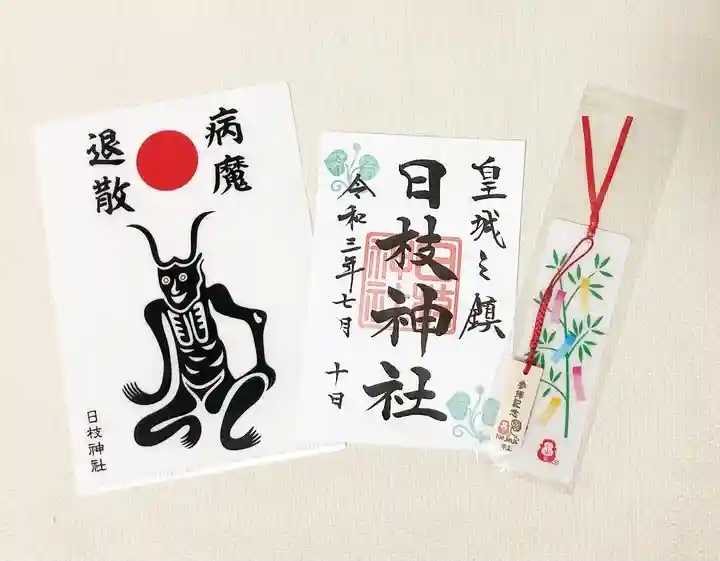 病魔
退散
日枝神社
皇城之鎮
日枝神社
日枝神社
令和三年七月
十日
参拝記念